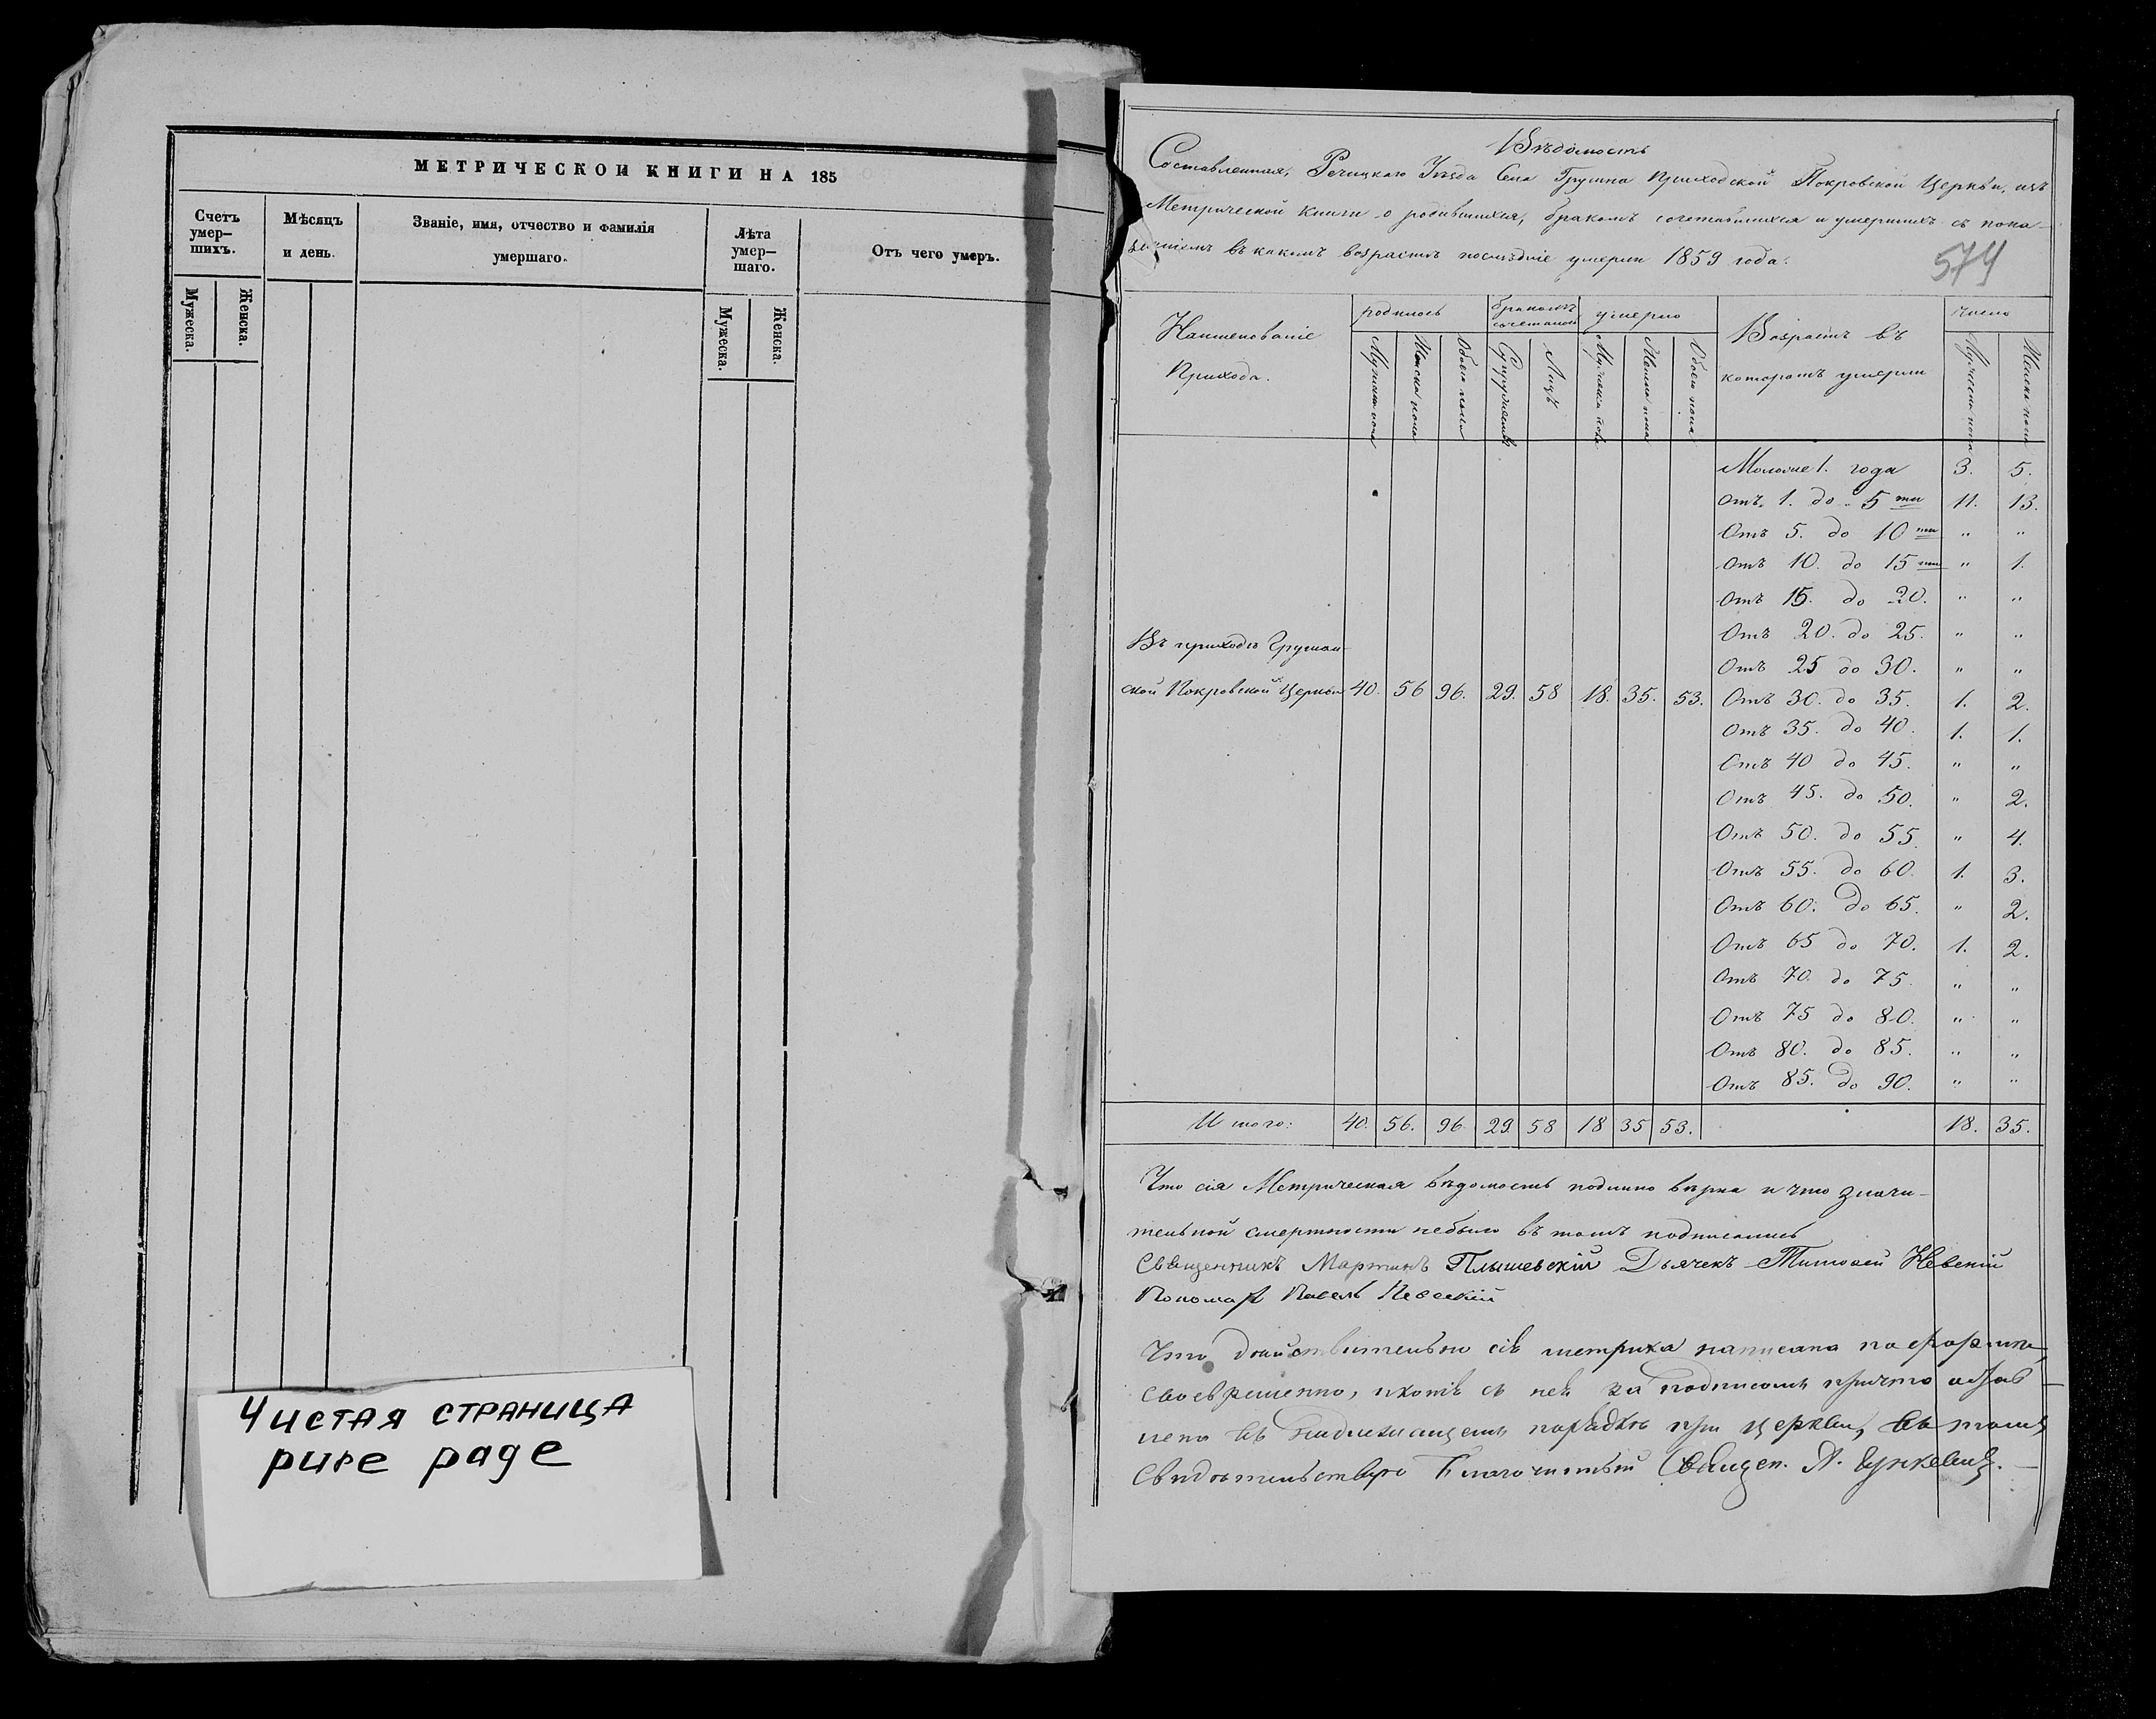 МЕТРИЧЕСКОЙ КНИГИ НА 185
Счетъ умер–шихъ.
Мужеска.
Женска.
Мѣсяцъ и день.
Званіе, имя, отчество и фамилія
умершаго.
Лѣта умер–шаго.
Мужеска.
Женска.
Отъ чего умеръ.
Чистая страница
pure page
Вѣдомость
Составленная, Речицкаго Уѣзда Села Грушна Приходской Покровской Церкви, изъ
Метрической книги о родившихся, бракомъ сочетавшихся и умершихъ съ пока–
заніемъ въ какомъ возрастѣ послѣдніе умерли 1859 года.
574
Наименованіе
Прихода.
родилось
Мужеска пола
Женска пола
Обоего пола
бракомъ
сочетаном
Супружествъ
Лицъ
умерло
Мужеска пола
Женска пола
Обоего пола
Возрастъ въ
которомъ умерли
число
Мужеска пола
Женска пола
Моложе 1. года 3. 5.
Отъ 1. до 5 ти 11. 13.
Отъ 5. до 10 ти " "
Отъ 10. до 15 ти " 1.
Отъ 15. до 20. " "
Отъ 20. до 25. " "
Въ приходѣ Грушан–
Отъ 25 до 30. " "
ской Покровской Церкви 40. 56 96. 29. 58 18. 35. 53. Отъ 30. до 35. 1. 2.
Отъ 35. до 40. 1. 1.
Отъ 40 до 45. " "
Отъ 45. до 50. " 2.
Отъ 50. до 55. " 4.
Отъ 55. до 60. 1. 3.
Отъ 60. до 65. " 2.
Отъ 65 до 70. 1. 2.
Отъ 70. до 75. " "
Отъ 75 до 80. " "
Отъ 80. до 85. " "
Отъ 85. до 90. " "
Итого: 40. 56. 96 29. 58 18 35 53. 18. 35.
Что сія Метрическая вѣдомость подлино вѣрна и что значи–
тельной смертности небыло въ томъ подписались
Священникъ Мартинъ Плышевскій Дьячекъ Тимофей Невскій
Пономар Павелъ Невскій
Что дѣйствительно сія метрика написана по формѣ,
своевременно, и копія съ ней за подписомъ причта
въ надлежащемъ порядкѣ при церкви, въ томъ
Свидѣтельствую Благочинный Священ. А.